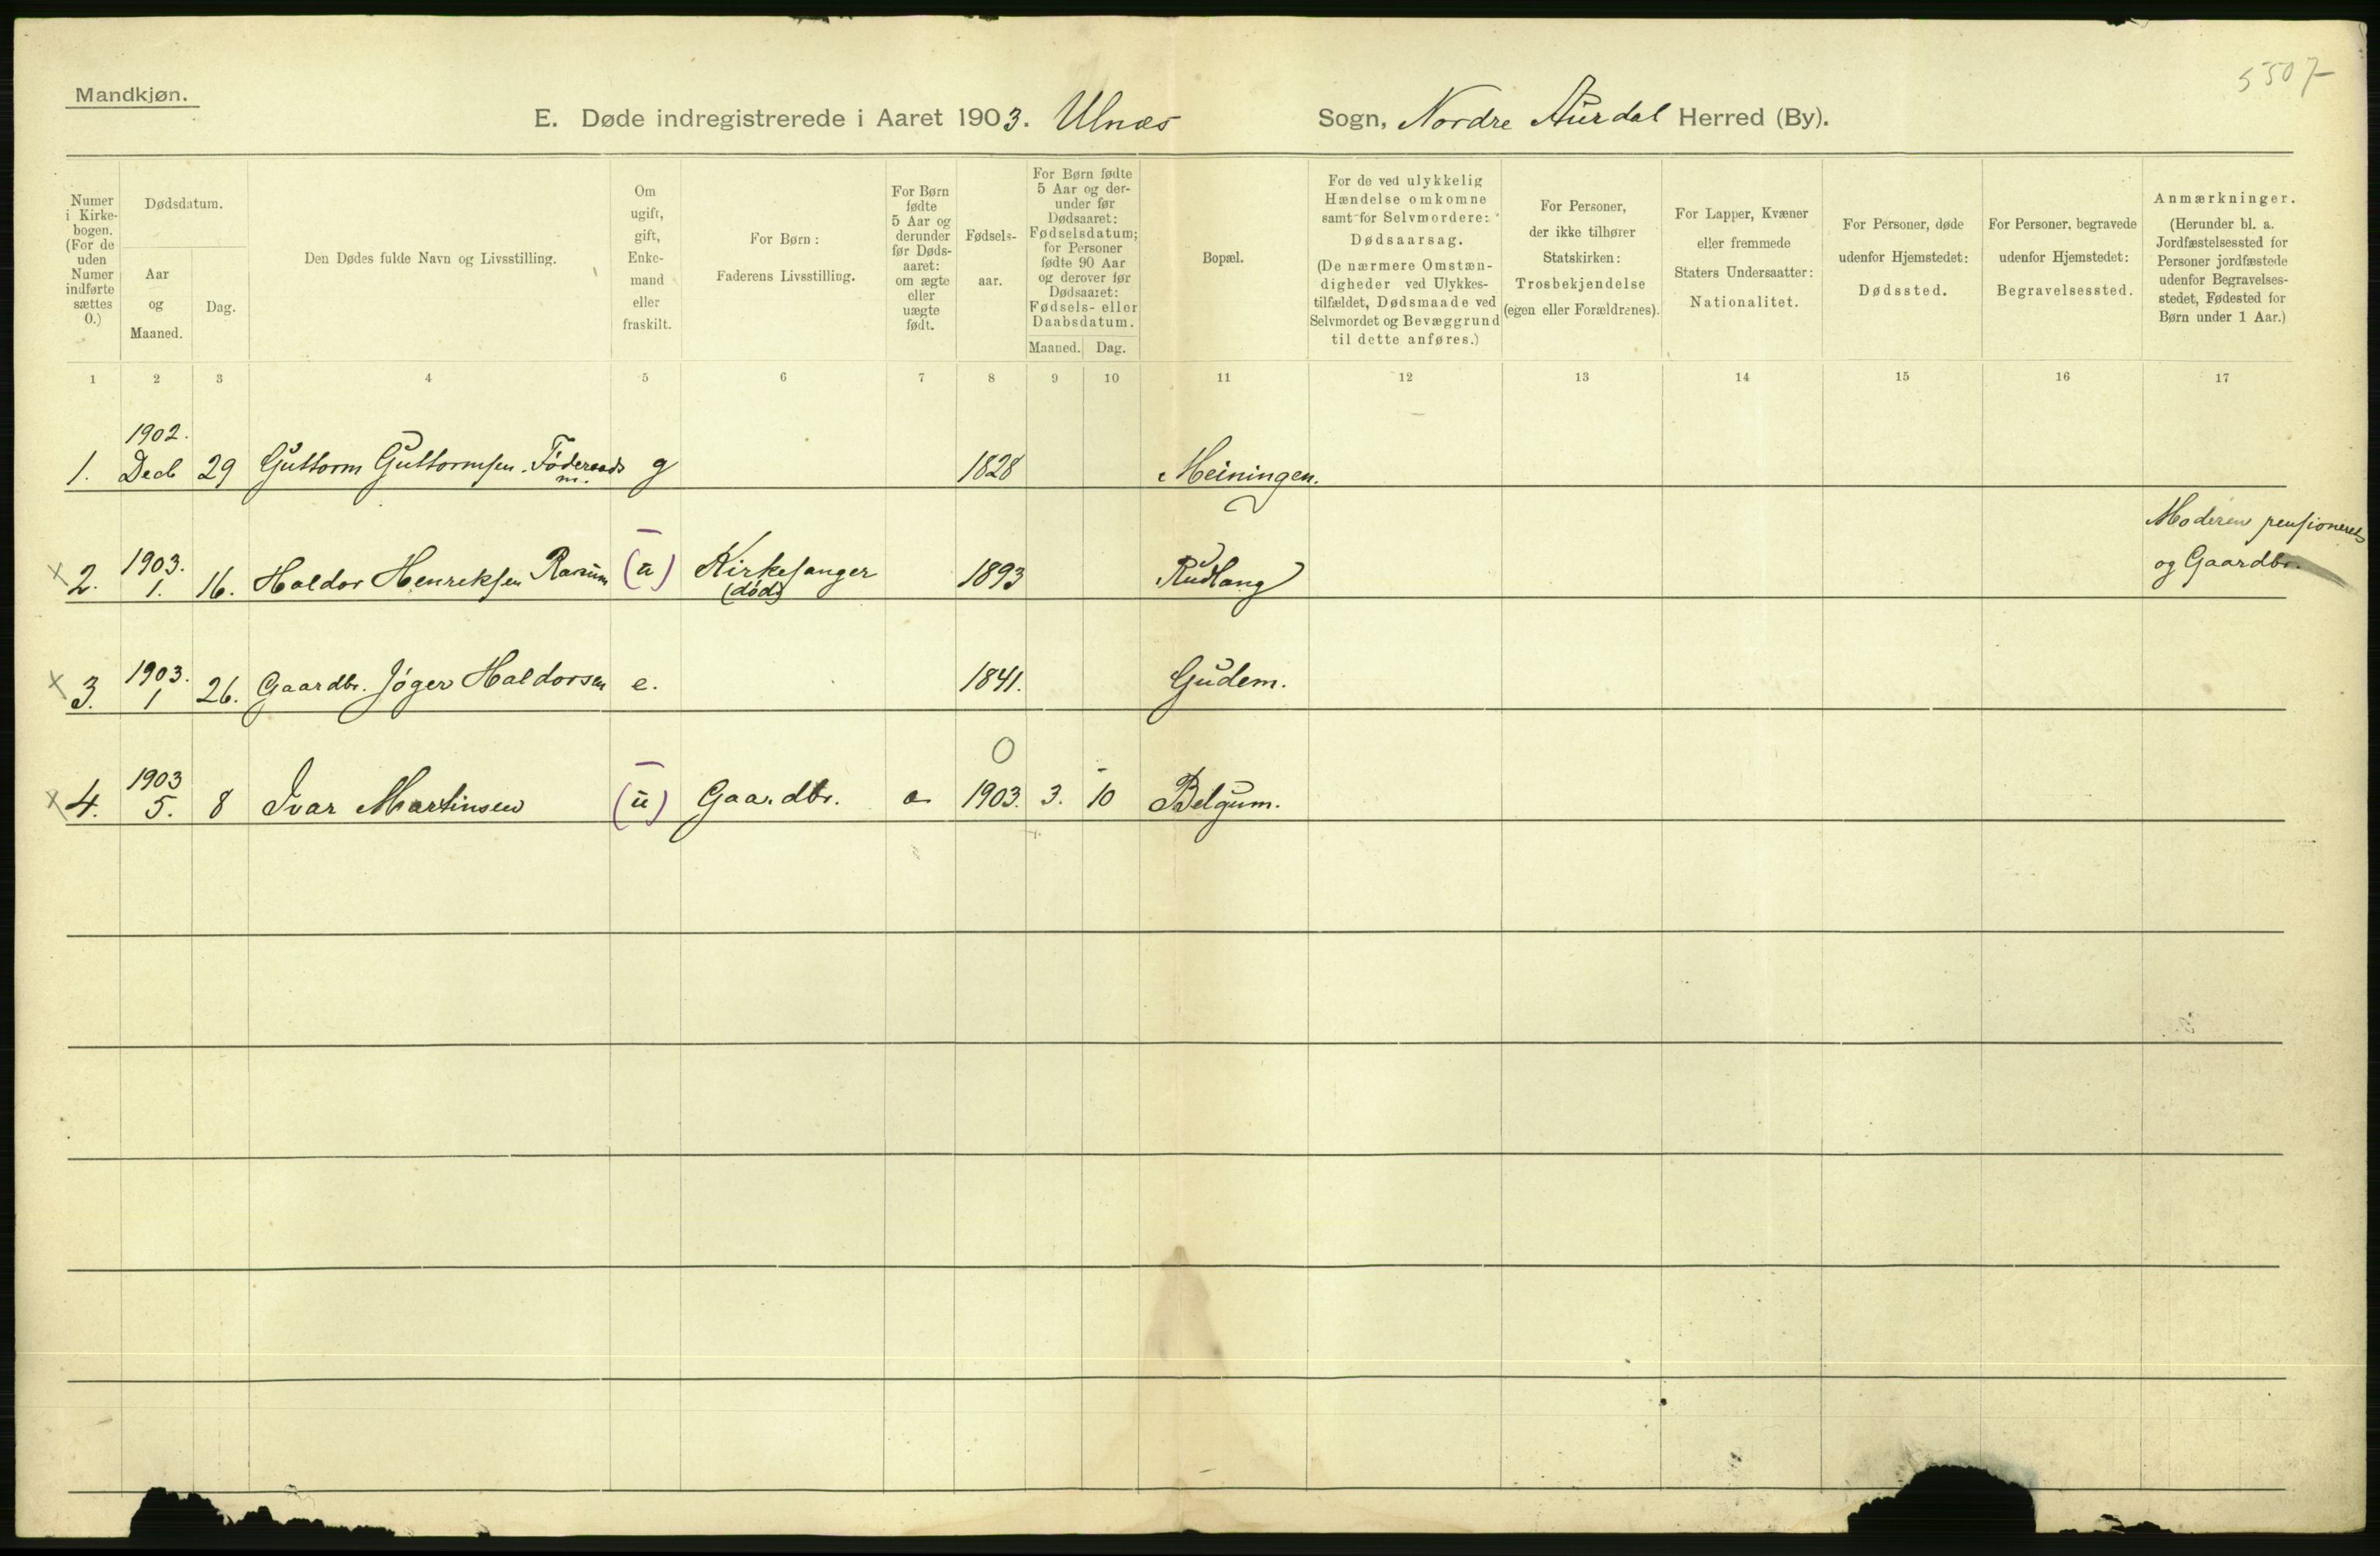 5507
Mandkjøn.
E. Døde indregistrerede i Aaret 1903. Ulnæs Sogn, Nordre Aurdal Herred (By).
Numer i Kirke-bogen. (For de uden Numer indførte sættes 0.)
Dødsdatum.
Aar og Maaned.
Dag.
Den Dødes fulde Navn og Livsstilling.
Om ugift, gift, Enke-mand eller fraskilt.
For Børn: Faderens Livsstilling.
For Børn fødte 5 Aar og derunder før Døds-aaret: om ægte eller uægte født.
Fødsels-aar.
For Børn fødte 5 Aar og der-under før Dødsaaret: Fødselsdatum; for Personer fødte 90 Aar og derover før Dødsaaret: Fødsels- eller Daabsdatum.
Maaned. Dag.
Bopæl.
For de ved ulykkelig Hændelse omkomne samt for Selvmordere: Dødsaarsag. (De nærmere Omstæn-digheder ved Ulykkes-tilfældet, Dødsmaade ved Selvmordet og Bevæggrund til dette anføres.)
For Personer, der ikke tilhører Statskirken: Trosbekjendelse (egen eller Forældrenes).
For Lapper, Kvæner eller fremmede Staters Undersaatter: Nationalitet.
For Personer, døde udenfor Hjemstedet: Dødssted.
For Personer, begravede udenfor Hjemstedet: Begravelsessted.
Anmærkninger. (Herunder bl. a. Jordfæstelsessted for Personer jordfæstede udenfor Begravelses-stedet, Fødested for Børn under 1 Aar.)
1 2 3 4 5 6 7 8 9 10 11 12 13 14 15 16 17
1902.
1. Decb 29 Guttorm Guttormsen. Føderaads m. g 1828 Meiningen.
Moderen pensioneret
og Gaardbr.
x 2. 1903. 1. 16. Haldor Henriksen Ranum (u) Kirkesanger (død) 1893 Rudlang
x 3. 1903. 1 26. Gaardbr. Jøger Haldorsen e. 1841. Gudem.
0
x 4. 1903 5. 8 Ivar Martinsen (u) Gaardbr. 1903. 3. 10 Belgum.